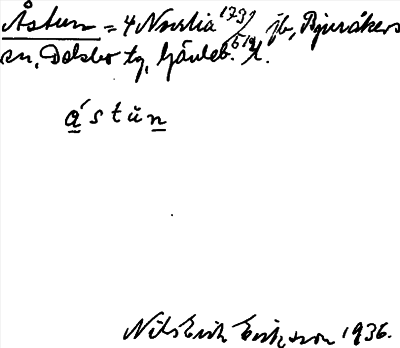 Åstun = 4 Norrbäck 1739/ jb, Bjuråkers
sn, Delsbo tg, Gävleb. l.
ástŭn
Nils Erik Eriksson 1936.